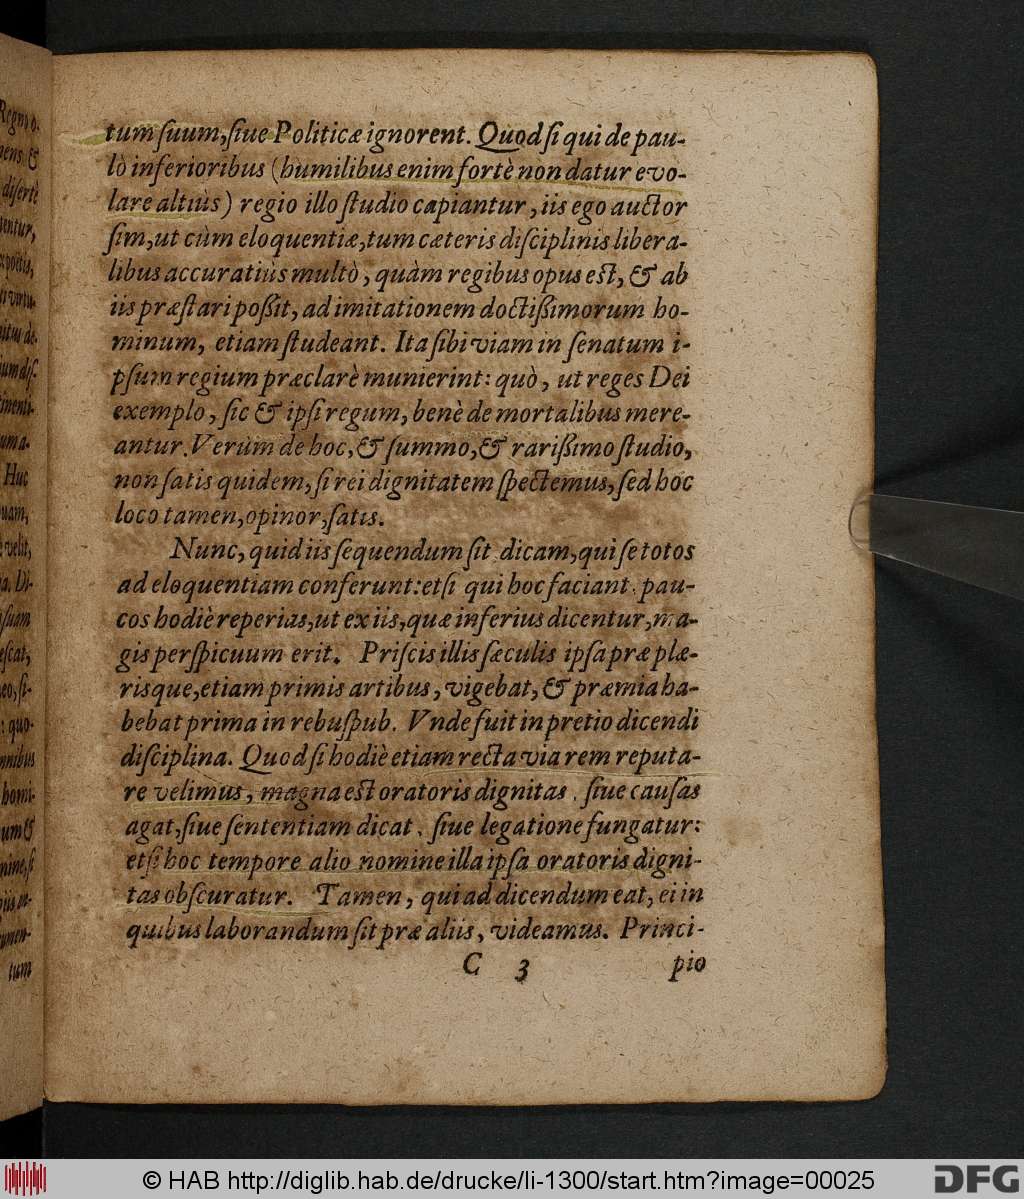 tum ſuum, ſiue Politicæ ignorent. Quod ſi qui de pau-
lò inferioribus (humilibus enim fortè non datur evo-
lare altiùs) regio illo ſtudio capiantur, iis ego auctor
ſim, ut cùm eloquentiæ, tum cæteris diſciplinis libera-
libus accuratiùs multò, quàm regibus opus eſt, & ab
iis præſtari poßit, ad imitationem doctißimorum ho-
minum, etiam ſtudeant. Ita ſibi viam in ſenatum i-
pſum regium præclarè munierint: quò, ut reges Dei
exemplo, ſic & ipſi regum, benè de mortalibus mere-
antur. Verùm de hoc, & ſummo, & rarißimo ſtudio,
non ſatis quidem, ſi rei dignitatem ſpectemus, ſed hoc
loco tamen, opinor, ſatis.
Nunc, quid iis ſequendum ſit dicam, qui ſe totos
ad eloquentiam conferunt: etſi qui hoc faciant, pau-
cos hodiè reperias, ut ex iis, quæ inferius dicentur, ma-
gis perſpicuum erit. Priſcis illis ſæculis ipſa præ plæ-
risque, etiam primis artibus, vigebat, & præmia ha-
bebat prima in rebuſpub. Vnde fuit in pretio dicendi
diſciplina. Quod ſi hodiè etiam recta via rem reputa-
re velimus, magna eſt oratoris dignitas, ſiue cauſas
agat, ſiue ſententiam dicat, ſiue legatione fungatur:
etſi hoc tempore alio nomine illa ipſa oratoris digni-
tas obſcuratur. Tamen, qui ad dicendum eat, ei in
quibus laborandum ſit præ aliis, videamus. Princi-
C 3 pio
© HAB http://diglib.hab.de/drucke/li-1300/start.htm?image=00025
DFG